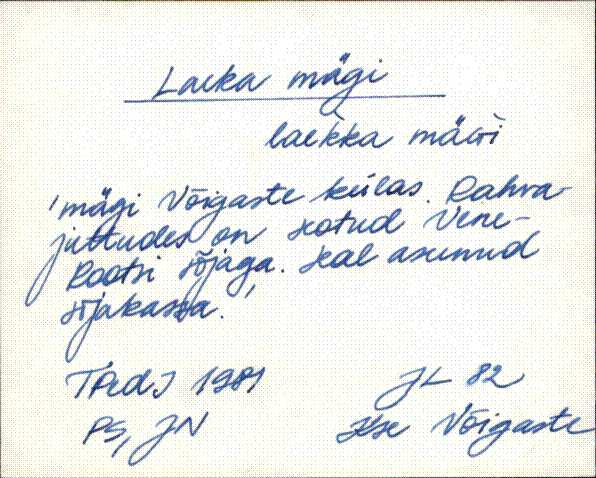 Laeka mägi
laekka mäɢi
'mägi Võigaste külas. Rahva-
juttudes on seotud Vene-
Rootsi sõjaga. Seal asunud
sõjakassa.'
TPedI 1981 JL 82
PS, JN Kse Võigaste